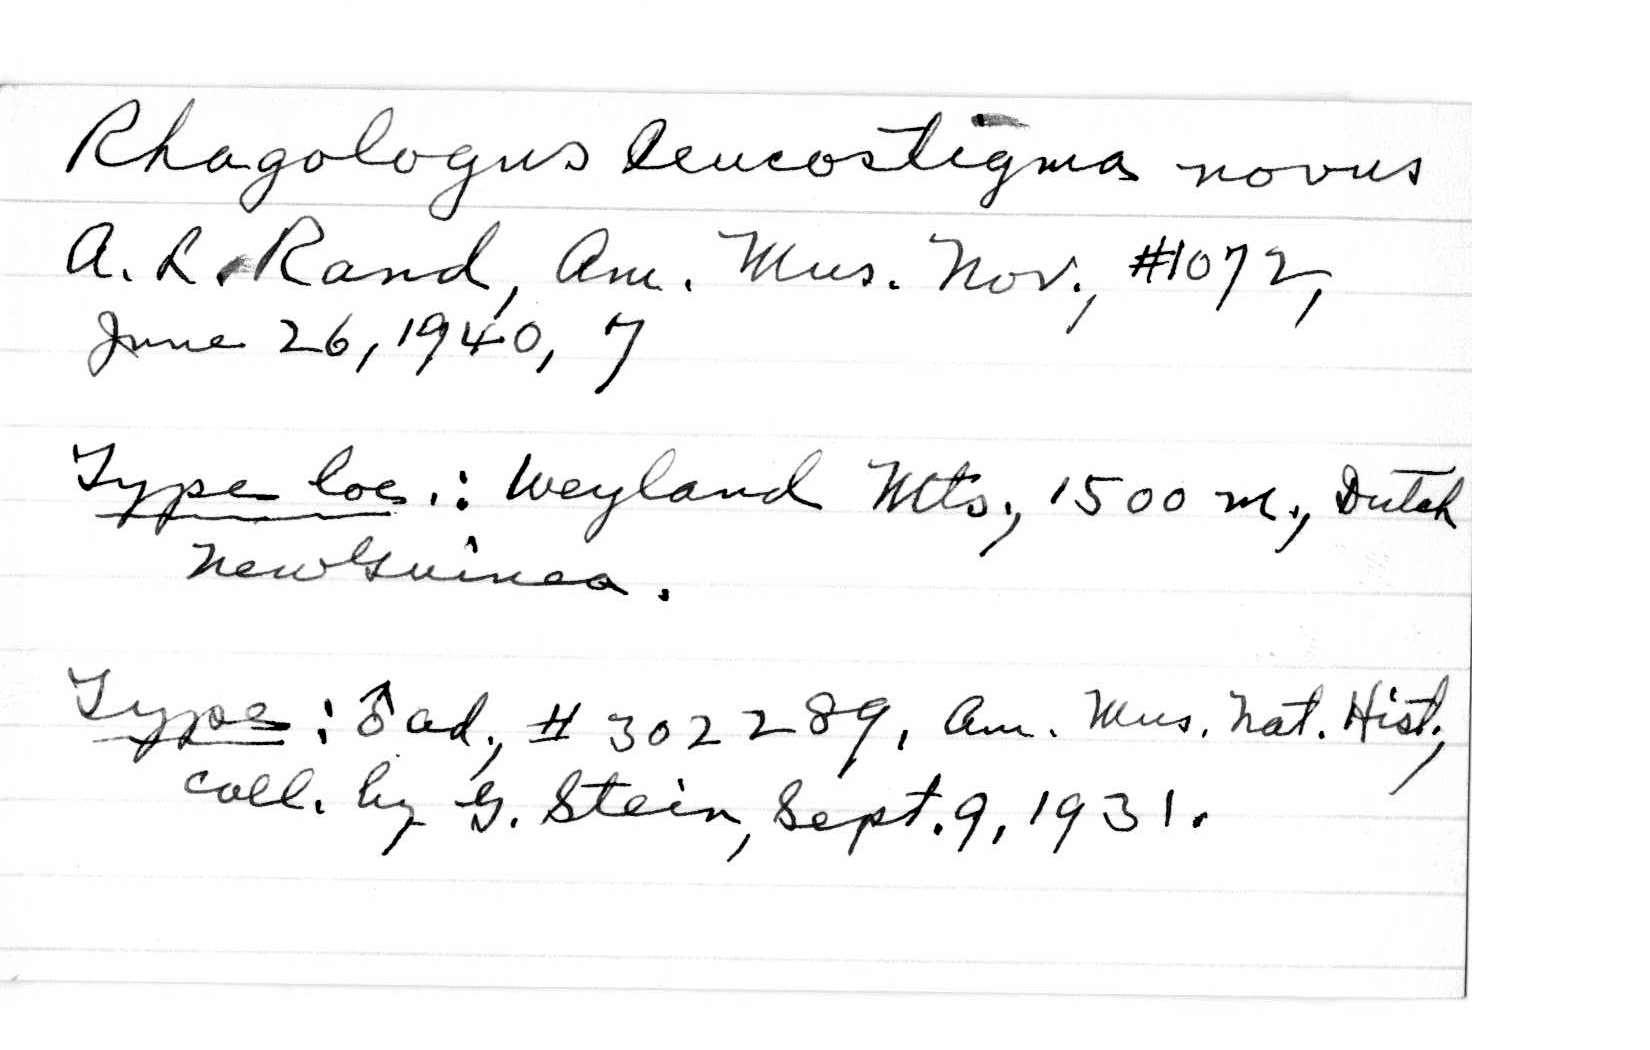 Rhagologus leucostigma novus
A. L. Rand, Am. Mus. Nov., #1072,
June 26, 1940, 7
Type loc.: Weyland Mts., 1500 m., Dutch
New Guinea.
Type: ♂ ad., # 302289, Am. Mus. Nat. Hist.,
coll. by G. Stein, Sept. 9, 1931.